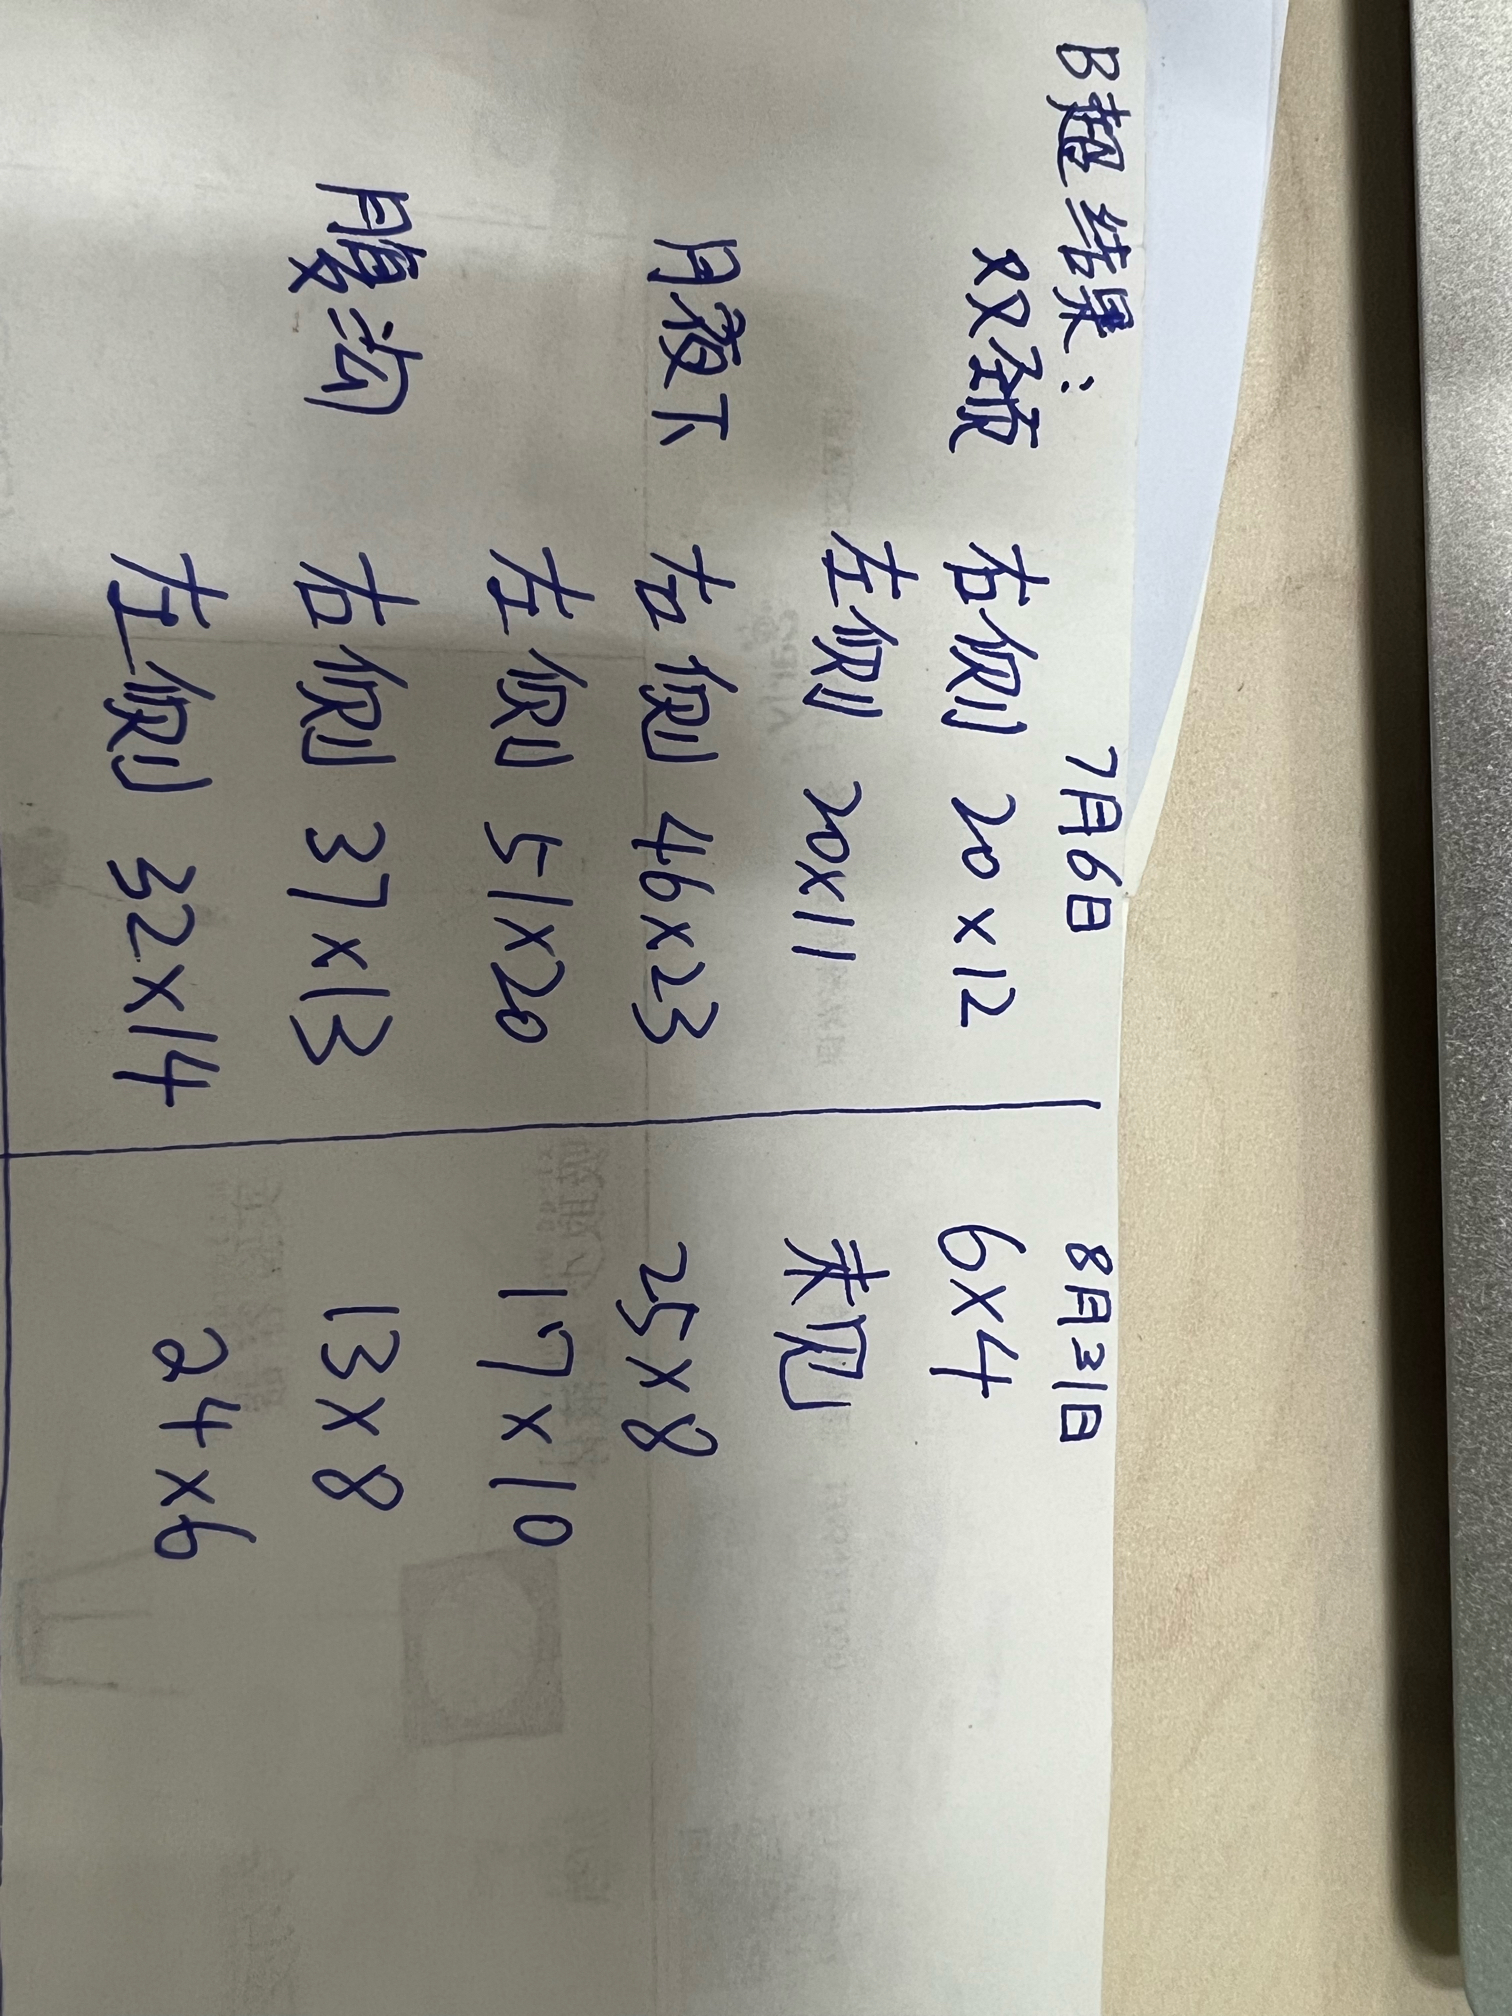 B超结果:
7月6日 8月31日
双颈 右侧 20×12 6×4
左侧 20×11 未见
腋下 右侧 46×23 25×8
左侧 51×20 17×10
腹沟 右侧 37×13 13×8
左侧 32×14 24×6